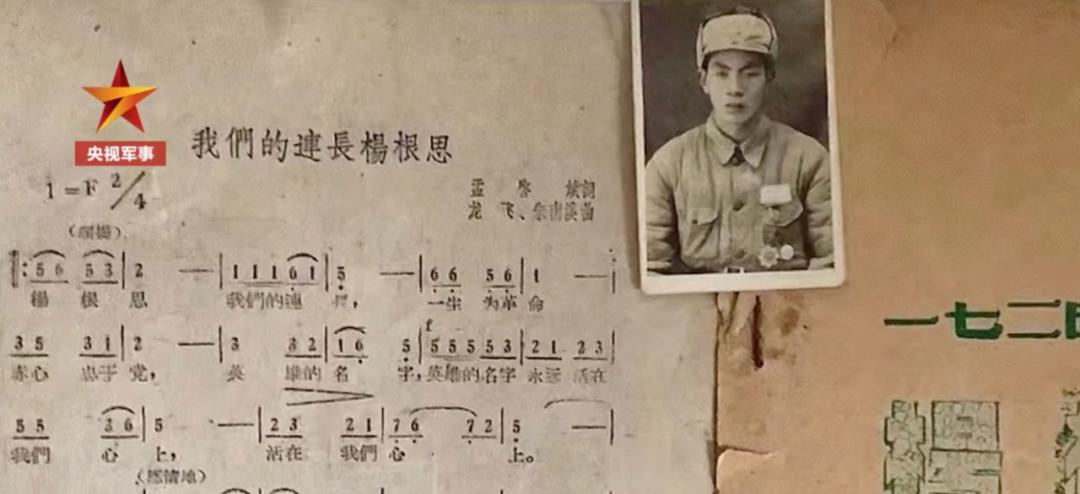 央视军事
我們的連長楊根思
1=F 2/4
龙飞、朱南溪曲
5 6 5 3 2 — 1 1 1 6 1 5 — 6 6 5 6 1 —
楊 根 思 我們的連 長, 一生 为革 命
3 5 3 1 2 — 3 3 2 1 6 5 5 5 5 5 3 2 1 2 3
赤心 忠于 党, 英 雄的 名 字, 英雄的名字 永远 活在
5 5 3 6 5 — 2 3 2 1 7 6 7 2 5 —
我們 心 上, 活在 我們 心 上。
一七二